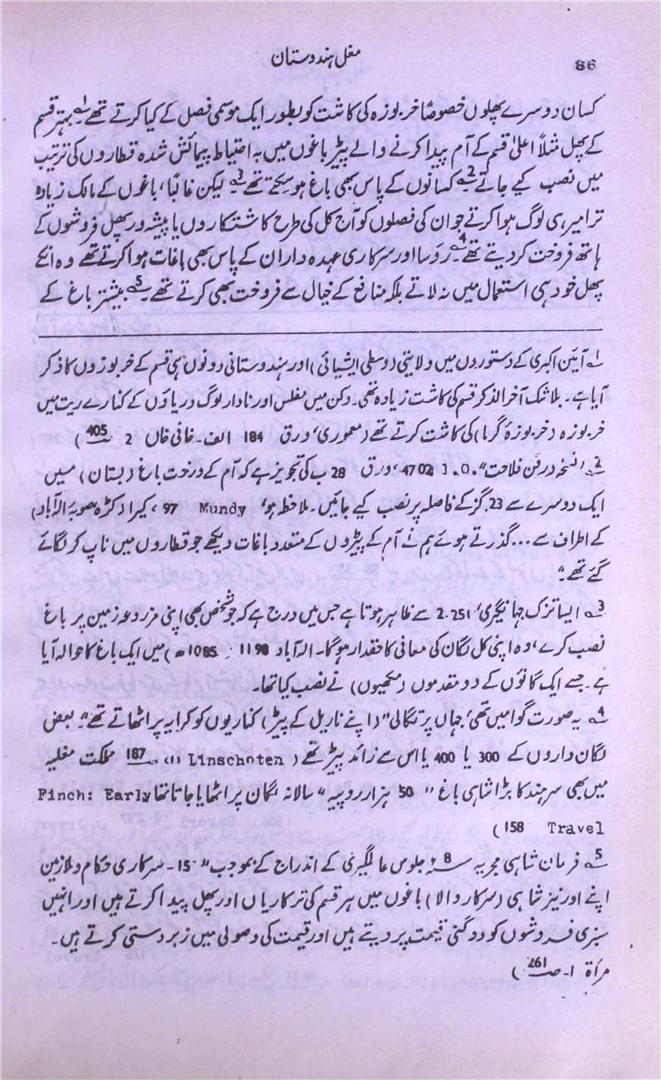 86
مغل ہندوستان
کسان دوسرے پھلوں خصوصاً خربوزہ کی کاشت کو بطور ایک موسمی فصل کے کیا کرتے تھے۔1 بہتر قسم
کے پھل مثلاً اعلیٰ قسم کے آم پیدا کرنے والے پیڑ باغوں میں بہ احتیاط پیمائش شدہ قطاروں کی ترتیب
میں نصب کیے جاتے۔2 کسانوں کے پاس بھی باغ ہو سکتے تھے۔3 لیکن غالباً، باغوں کے مالک زیادہ
تر امیر ہی لوگ ہوا کرتے جو ان کی فصلوں کو آج کل کی طرح کاشتکاروں یا پیشہ ور پھل فروشوں کے
ہاتھ فروخت کر دیتے تھے۔4 رؤسا اور سرکاری عہدہ داران کے پاس بھی باغات ہوا کرتے تھے وہ انکے
پھل خود ہی استعمال میں نہ لاتے بلکہ منافع کے خیال سے فروخت بھی کرتے تھے۔5 بیشتر باغ کے
1 آئین اکبری کے دستوروں میں ولایتی (وسطی ایشیائی) اور ہندوستانی دونوں ہی قسم کے خربوزوں کا ذکر
آیا ہے۔ بلاشک آخر الذکر قسم کی کاشت زیادہ تھی۔ دکن میں مفلس اور نادار لوگ دریاؤں کے کنارے ریت میں
خربوزہ (خربوزۂ گرما) کی کاشت کرتے تھے (معموری، ورق 184 الف۔ خافی خاں 2 ص 405)
2 "نسخہ در فن فلاحت"، I.O. 4702، ورق 28 ب کی تجویز ہے کہ آم کے درخت باغ (بستان) میں
ایک دوسرے سے 23 گز کے فاصلہ پر نصب کیے جائیں۔ ملاحظہ ہو، Mundy 97، کیرا (کڑہ صوبۂ الہ آباد)
کے اطراف سے... گذرتے ہوئے ہم نے آم کے پیڑوں کے متعدد باغات دیکھے جو قطاروں میں ناپ کر لگائے
گئے تھے۔"
3 ایسا تزک جہانگیری، 2.251 سے ظاہر ہوتا ہے جس میں درج ہے کہ جو شخص بھی اپنی مزروعہ زمین پر باغ
نصب کرے، وہ اپنی کل لگان کی معافی کا حقدار ہوگا۔ الہ آباد 1198 (1085ھ) میں ایک باغ کا حوالہ آیا
ہے جسے ایک گانوں کے دو مقدموں (مکھیوں) نے نصب کیا تھا۔
4 یہ صورت گوا میں تھی، جہاں پرتگالی "(اپنے ناریل کے پیڑ) کناریوں کو کرایہ پر اٹھاتے تھے" بعض
لگان داروں کے 300 یا 400 یا اس سے زائد پیڑ تھے (Linschoten (1) ص 187) مملکت مغلیہ
میں بھی سرہند کا بڑا شاہی باغ "50 ہزار روپیہ" سالانہ لگان پر اٹھایا جاتا تھا Finch: Early
Travel 158)
5 فرمان شاہی مجریہ 8 جلوس عالمگیری کے اندراج کے بموجب "15۔ سرکاری حکام و ملازمین
اپنے اور نیز شاہی (سرکار والا) باغوں میں ہر قسم کی ترکاریاں اور پھل پیدا کرتے ہیں اور انہیں
سبزی فروشوں کو دوگنی قیمت پر دیتے ہیں اور قیمت کی وصولی میں زبردستی کرتے ہیں۔
مرأۃ 1۔ ص 261)